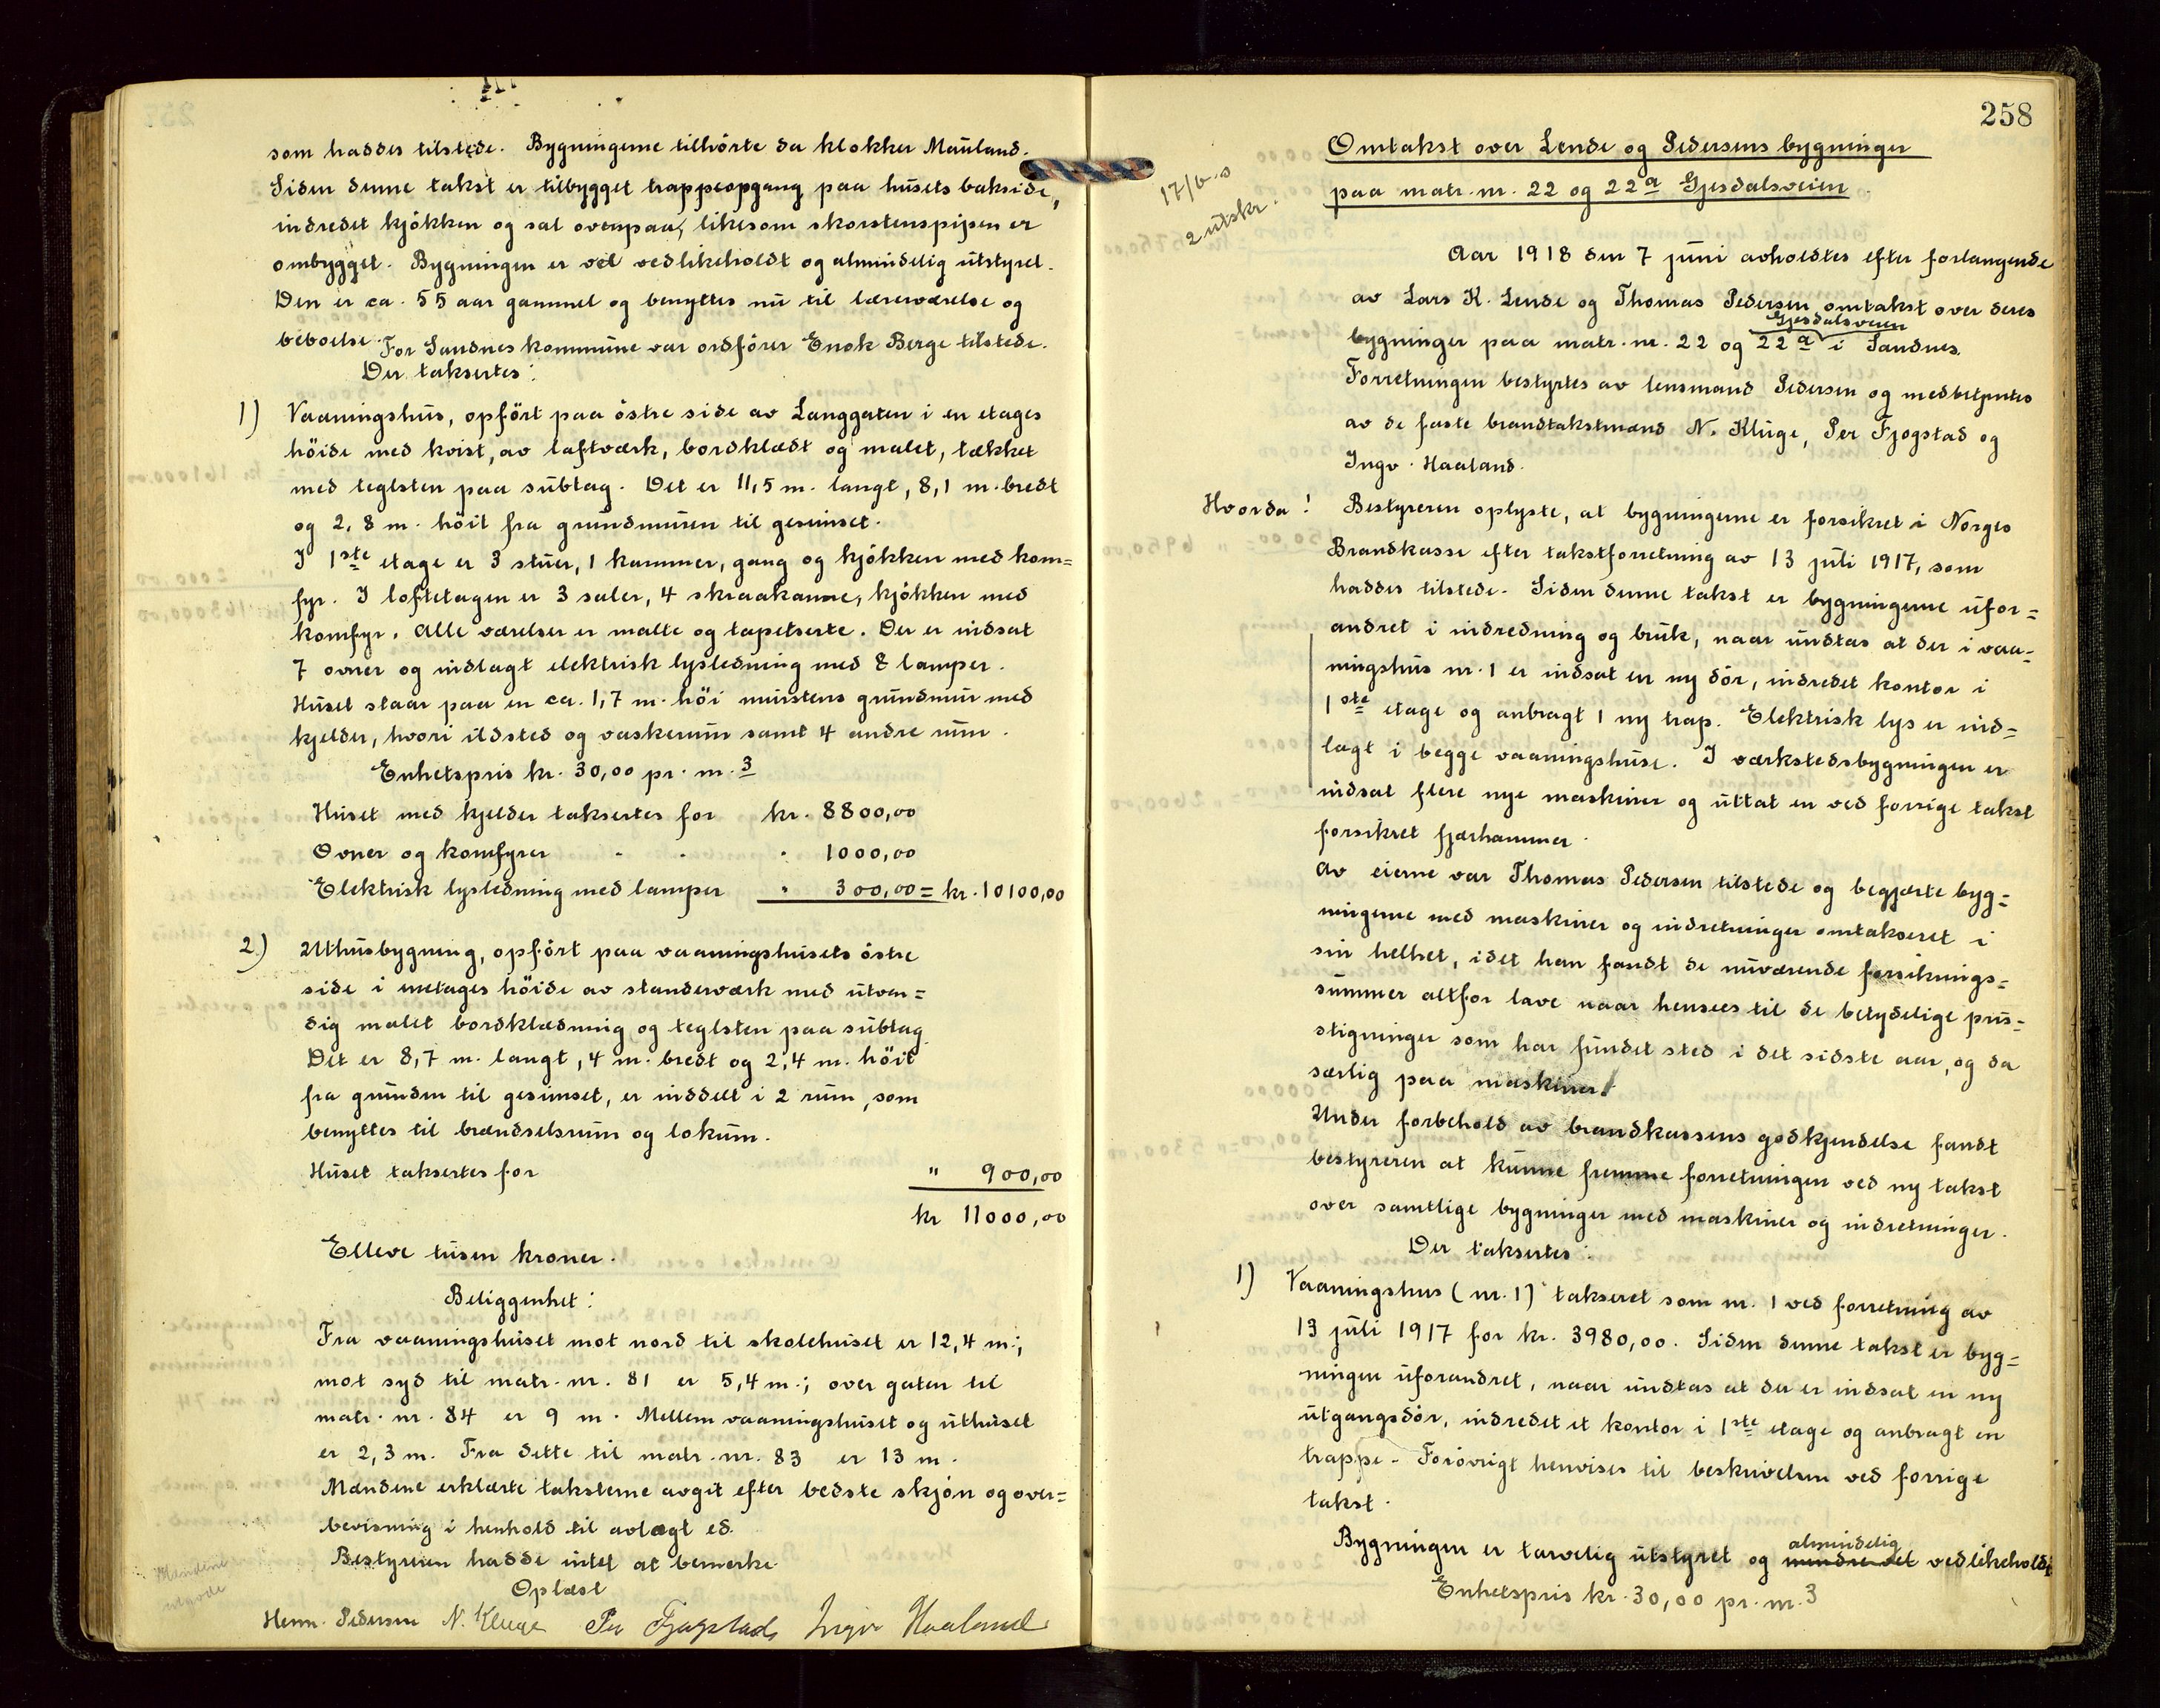 som haddes tilstede. Bygningerne tilhørte da klokker Mauland.
Siden denne takst er tilbygget trappeopgang paa husets bakside,
indredet kjøkken og sal ovenpaa, likesom skorstenspipen er
ombygget. Bygningen er vel vedlikeholdt og almindelig utstyret.
Den er ca. 55 aar gammel og benyttes nu til læreværelse og
beboelse. For Sandnes kommune var ordfører Enok Berge tilstede.
Der taksertes:
1) Vaaningshus, opført paa østre side av Langgaten i en etages
høide med kvist, av laftværk, bordklædt og malet, tækket
med teglsten paa subtag. Det er 11,5 m. langt, 8,1 m. bredt
og 2,8 m. høit fra grundmuren til gesimset.
I 1ste etage er 3 stuer, 1 kammer, gang og kjøkken med kom=
fyr. I loftetagen er 3 saler, 4 skraakamre, kjøkken med
komfyr. Alle værelser er malte og tapetserte. Der er indsat
7 ovner og indlagt elektrisk lysledning med 8 lamper.
Huset staar paa en ca. 1,7 m. høi murstens grundmur med
kjelder, hvori ildsted og vaskerum samt 4 andre rum.
Enhetspris kr. 30,00 pr. m.3
Huset med kjelder taksertes for kr. 8800,00
Ovner og komfyrer - - " 1000,00
Elektrisk lysledning med lamper " 300,00 = kr. 10100,00
2.) Uthusbygning, opført paa vaaningshusets østre
side i enetages høide av standerværk med utven=
dig malet bordklædning og teglsten paa subtag.
Det er 8,7 m. langt, 4 m. bredt og 2,4 m. høit
fra grunden til gesimset, er inddelt i 2 rum, som
benyttes til brændselsrum og lokum.
Huset taksertes for " 900,00
kr 11000,00
Elleve tusen kroner.
Beliggenhet:
Fra vaaningshuset mot nord til skolehuset er 12,4 m.;
mot syd til matr. nr. 81 er 5,4 m.; over gaten til
matr. nr. 84 er 9 m. Mellem vaaningshuset og uthuset
er 2,3 m. Fra dette til matr. nr. 83 er 13 m.
Mændene erklærte taksterne avgit efter bedste skjøn og over=
bevisning i henhold til avlagt ed.
Bestyreren hadde intet at bemerke.
Oplæst
Henn. Pedersen N. Kluge Per Fjogstad Ingv Haaland
258
17/6-s
2 utskr.
Omtakst over Lende og Pedersens bygninger
paa matr. nr. 22 og 22a Gjesdalsveien.
Aar 1918 den 7 juni avholdtes efter forlangende
av Lars K. Lende og Thomas Pedersen omtakst over deres
Gjesdalsveien
bygninger paa matr. nr. 22 og 22a i Sandnes.
Forretningen bestyrtes av lensmand Pedersen og medbetjentes
av de faste brandtakstmænd N. Kluge, Per Fjogstad og
Ingv. Haaland.
Hvorda! Bestyreren oplyste, at bygningerne er forsikret i Norges
Brandkasse efter takstforretning av 13 juli 1917, som
haddes tilstede. Siden denne takst er bygningerne ufor=
andret i indredning og bruk, naar undtas at der i vaa=
ningshus nr. 1 er indsat en ny dør, indredet kontor i
1ste etage og anbragt 1 ny trap. Elektrisk lys er ind=
lagt i begge vaaningshuse. I værkstedsbygningen er
indsat flere nye maskiner og uttat en ved forrige takst
forsikret fjærhammer.
Av eierne var Thomas Pedersen tilstede og begjærte byg=
ningerne med maskiner og indretninger omtakseret i
sin helhet, idet han fandt de nuværende forsiknings=
summer altfor lave naar hensees til de betydelige pris=
stigninger som har fundet sted i det sidste aar, og da
særlig paa maskiner.
Under forbehold av brandkassens godkjendelse fandt
bestyreren at kunne fremme forretningen ved ny takst
over samtlige bygninger med maskiner og indretninger.
Der taksertes:
1) Vaaningshus (nr. 1) takseret som nr. 1 ved forretning av
13 juli 1917 for kr. 3980,00. Siden denne takst er byg=
ningen uforandret, naar undtas at der er indsat en ny
utgangsdør, indredet et kontor i 1ste etage og anbragt en
trappe - Forøvrigt henvises til beskrivelsen ved forrige
takst.
almindelig
Bygningen er tarvelig utstyret og mindre vel vedlikeholdt
Enhetspris kr. 30,00 pr. m.3